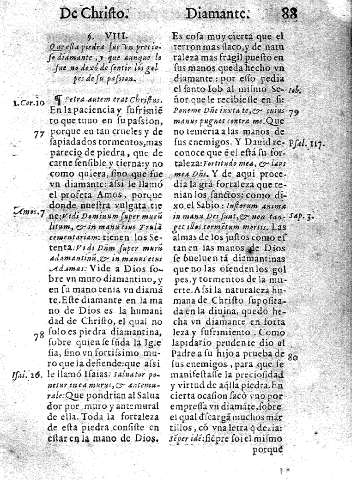 De Christo. Diamante. 88
§. VIII.
Que esta piedra fue vn precio-
so diamante, y que aunque lo
fue no dexò de sentir los gol
pes de su passion.
1. Cor. 10
¶ Petra autem erat Christus.
En la paciencia y sufrimiẽ
to que tuuo en su passion,
77
porque en tan crueles y de
sapiadados tormentos, mas
parecio de piedra, que de
carne sensible, y tierna: y no
como quiera, sino que fue
vn diamante: assi le llamò
el profeta Amos, porque
donde nuestra vulgata tie-
Amos. 7
ne: Vidi Dominum super muru
litum, & in manu eius Trulla
cœmentariam: tienen los Se-
tenta. Vidi Dnm super murũ
adamantinũ, & in manu eius
Adamas: Vide a Dios so-
bre vn muro diamantino, y
en su mano tenia vn diamã
te. Este diamante en la ma
no de Dios es la humani
dad de Christo, el qual no
solo es piedra diamantina,
78
sobre quien se fũda la Igle-
sia, sino vn fortissimo mu-
ro que la defiende: que assi
Isai. 26.
le llamò Isaias: Saluator po-
netur in ea murus, & antemu-
rale: Que pondrian al Salua
dor por muro y antemural
de ella. Toda la fortaleza
de esta piedra consiste en
estar en la mano de Dios.
Es cosa muy cierta que el
terron mas flaco, y de natu
raleza mas fragil puesto en
sus manos queda hecho vn
diamante: por esso pedia
el santo Iob al mismo Se-
Iob.
ñor le recibiesse en si:
Pone me Dñe iuxta te, & cuius
79
manus pugnet contra me. Que
no temeria a las manos de
sus enemigos. Y Dauid re-
Psal. 117.
conoce que el es su forta-
leza: Fortitudo mea, & laus
mea Dñs. Y de aqui proce-
dia la grã fortaleza que te-
nian los sanctos: como di-
xo el Sabio: Iustorum animæ
in manu Dei sunt, & non tan-
Sap. 3.
get illos tormẽtum mortis. Las
almas de los justos como es
tan en las manos de Dios
se bueluen tã diamantinas
que no las ofenden los gol
pes, y tormentos de la mu-
erte. Assi la naturaleza hu-
mana de Christo suposita-
da en la diuina, quedò he-
cha vn diamante en forta
leza y sufrimiento. Como
lapidario prudente dio el
Padre a su hijo a prueba de
80
sus enemigos, para que se
manifestasse la preciosidad
y virtud de aq̃lla piedra. En
cierta ocasion sacò vno por
empressa vn diamãte, sobre
el qual descargã muchos mar
tillos, cõ vna letra q̃ dezia:
Sẽper idẽ: siẽpre soi el mismo
porque